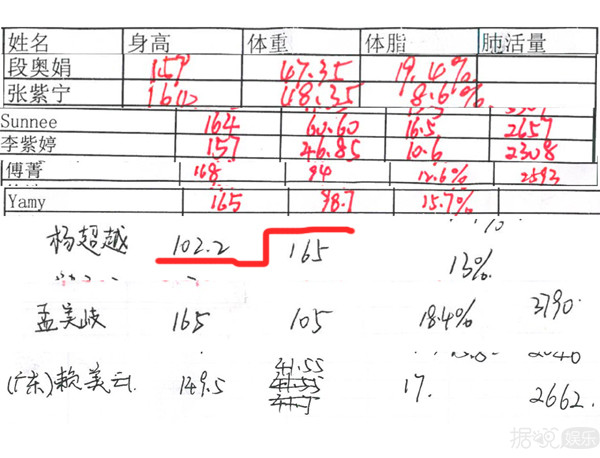 姓名 身高 体重 体脂 肺活量
段奥娟 157 47.35 19.4%
张紫宁 160 48.35 8.6%
Sunnee 164 60.60 16.5 2657
李紫婷 157 46.85 10.6 2308
傅菁 168 94 12.6% 2593
Yamy 165 98.7 15.7%
杨超越 102.2 165 13%
孟美岐 165 105 18.4% 3790
41.55
(广东)赖美云 149.5 41.55 17. 2662.
据说娱乐